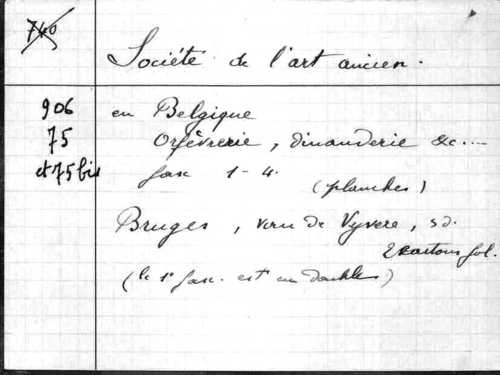 740
Société de l'art ancien.
906 en Belgique
75 Orfèvrerie, dinanderie &c...
et 75 bis fasc 1-4.
(planches)
Bruges, de Vyvere, s.d.
2 cartons fol.
(le 1e fasc. est en double)